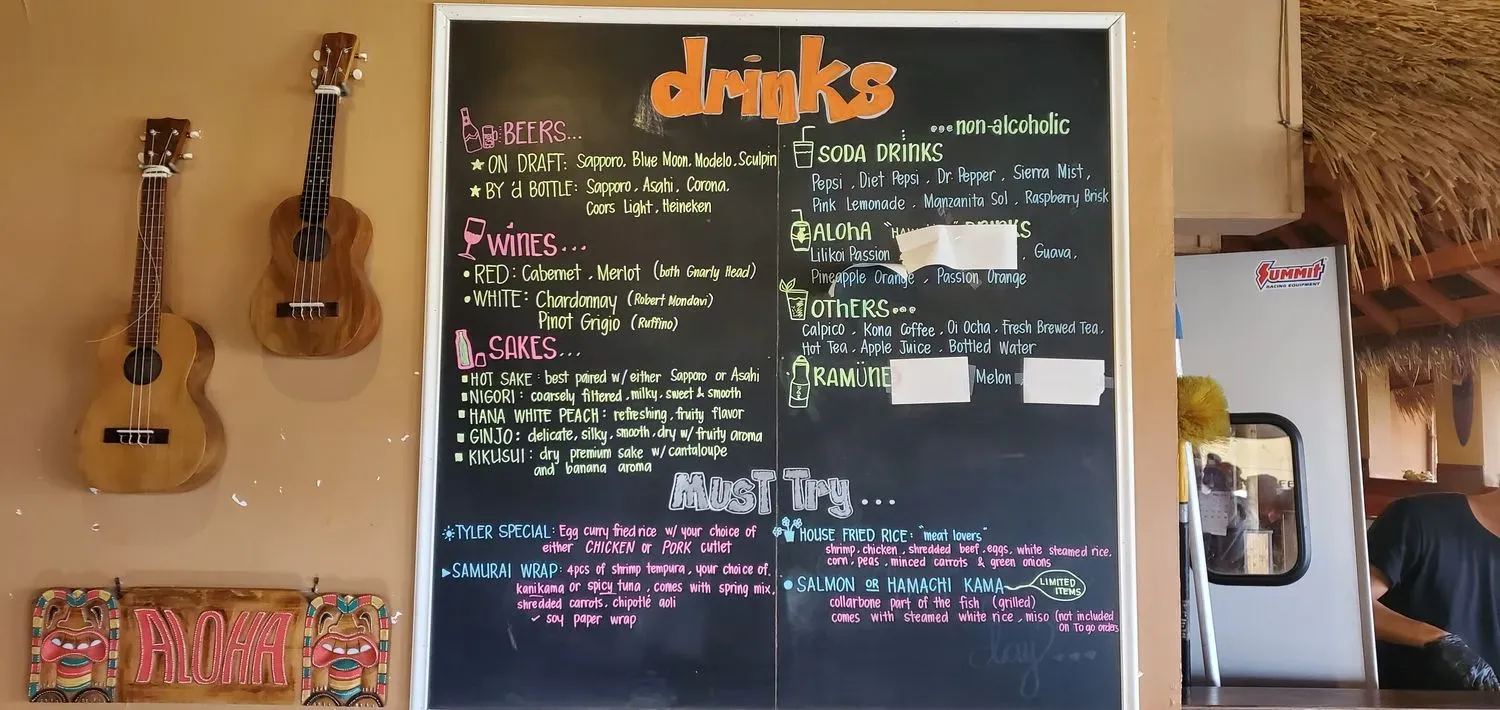 drinks
BEERS...
★ ON DRAFT: Sapporo, Blue Moon, Modelo, Sculpin
★ BY 'd BOTTLE: Sapporo, Asahi, Corona,
Coors Light, Heineken
WINES...
• RED: Cabernet, Merlot (both Gnarly Head)
• WHITE: Chardonnay (Robert Mondavi)
Pinot Grigio (Ruffino)
SAKES...
▪ HOT SAKE: best paired w/ either Sapporo or Asahi
▪ NIGORI: coarsely filtered, milky, sweet & smooth
▪ HANA WHITE PEACH: refreshing, fruity flavor
▪ GINJO: delicate, silky, smooth, dry w/ fruity aroma
▪ KIKUSUI: dry premium sake w/ cantaloupe
and banana aroma
...non-alcoholic
SODA DRINKS
Pepsi, Diet Pepsi, Dr. Pepper, Sierra Mist,
Pink Lemonade, Manzanita Sol, Raspberry Brisk
ALOHA DRINKS
Lilikoi Passion, Guava,
Pineapple Orange, Passion Orange
OTHERS...
Calpico, Kona Coffee, Oi Ocha, Fresh Brewed Tea,
Hot Tea, Apple Juice, Bottled Water
RAMUNE Melon
MUST Try...
TYLER SPECIAL: Egg curry fried rice w/ your choice of
either CHICKEN or PORK cutlet
▶ SAMURAI WRAP: 4pcs of shrimp tempura, your choice of,
kanikama or spicy tuna, comes with spring mix,
shredded carrots, chipotlé aoli
✓ soy paper wrap
HOUSE FRIED RICE: "meat lovers"
shrimp, chicken, shredded beef, eggs, white steamed rice,
corn, peas, minced carrots & green onions
• SALMON OR HAMACHI KAMA
LIMITED
ITEMS
collarbone part of the fish (grilled)
comes with steamed white rice, miso (not included
on To go orders
ALOHA
SUMMIT
RACING EQUIPMENT